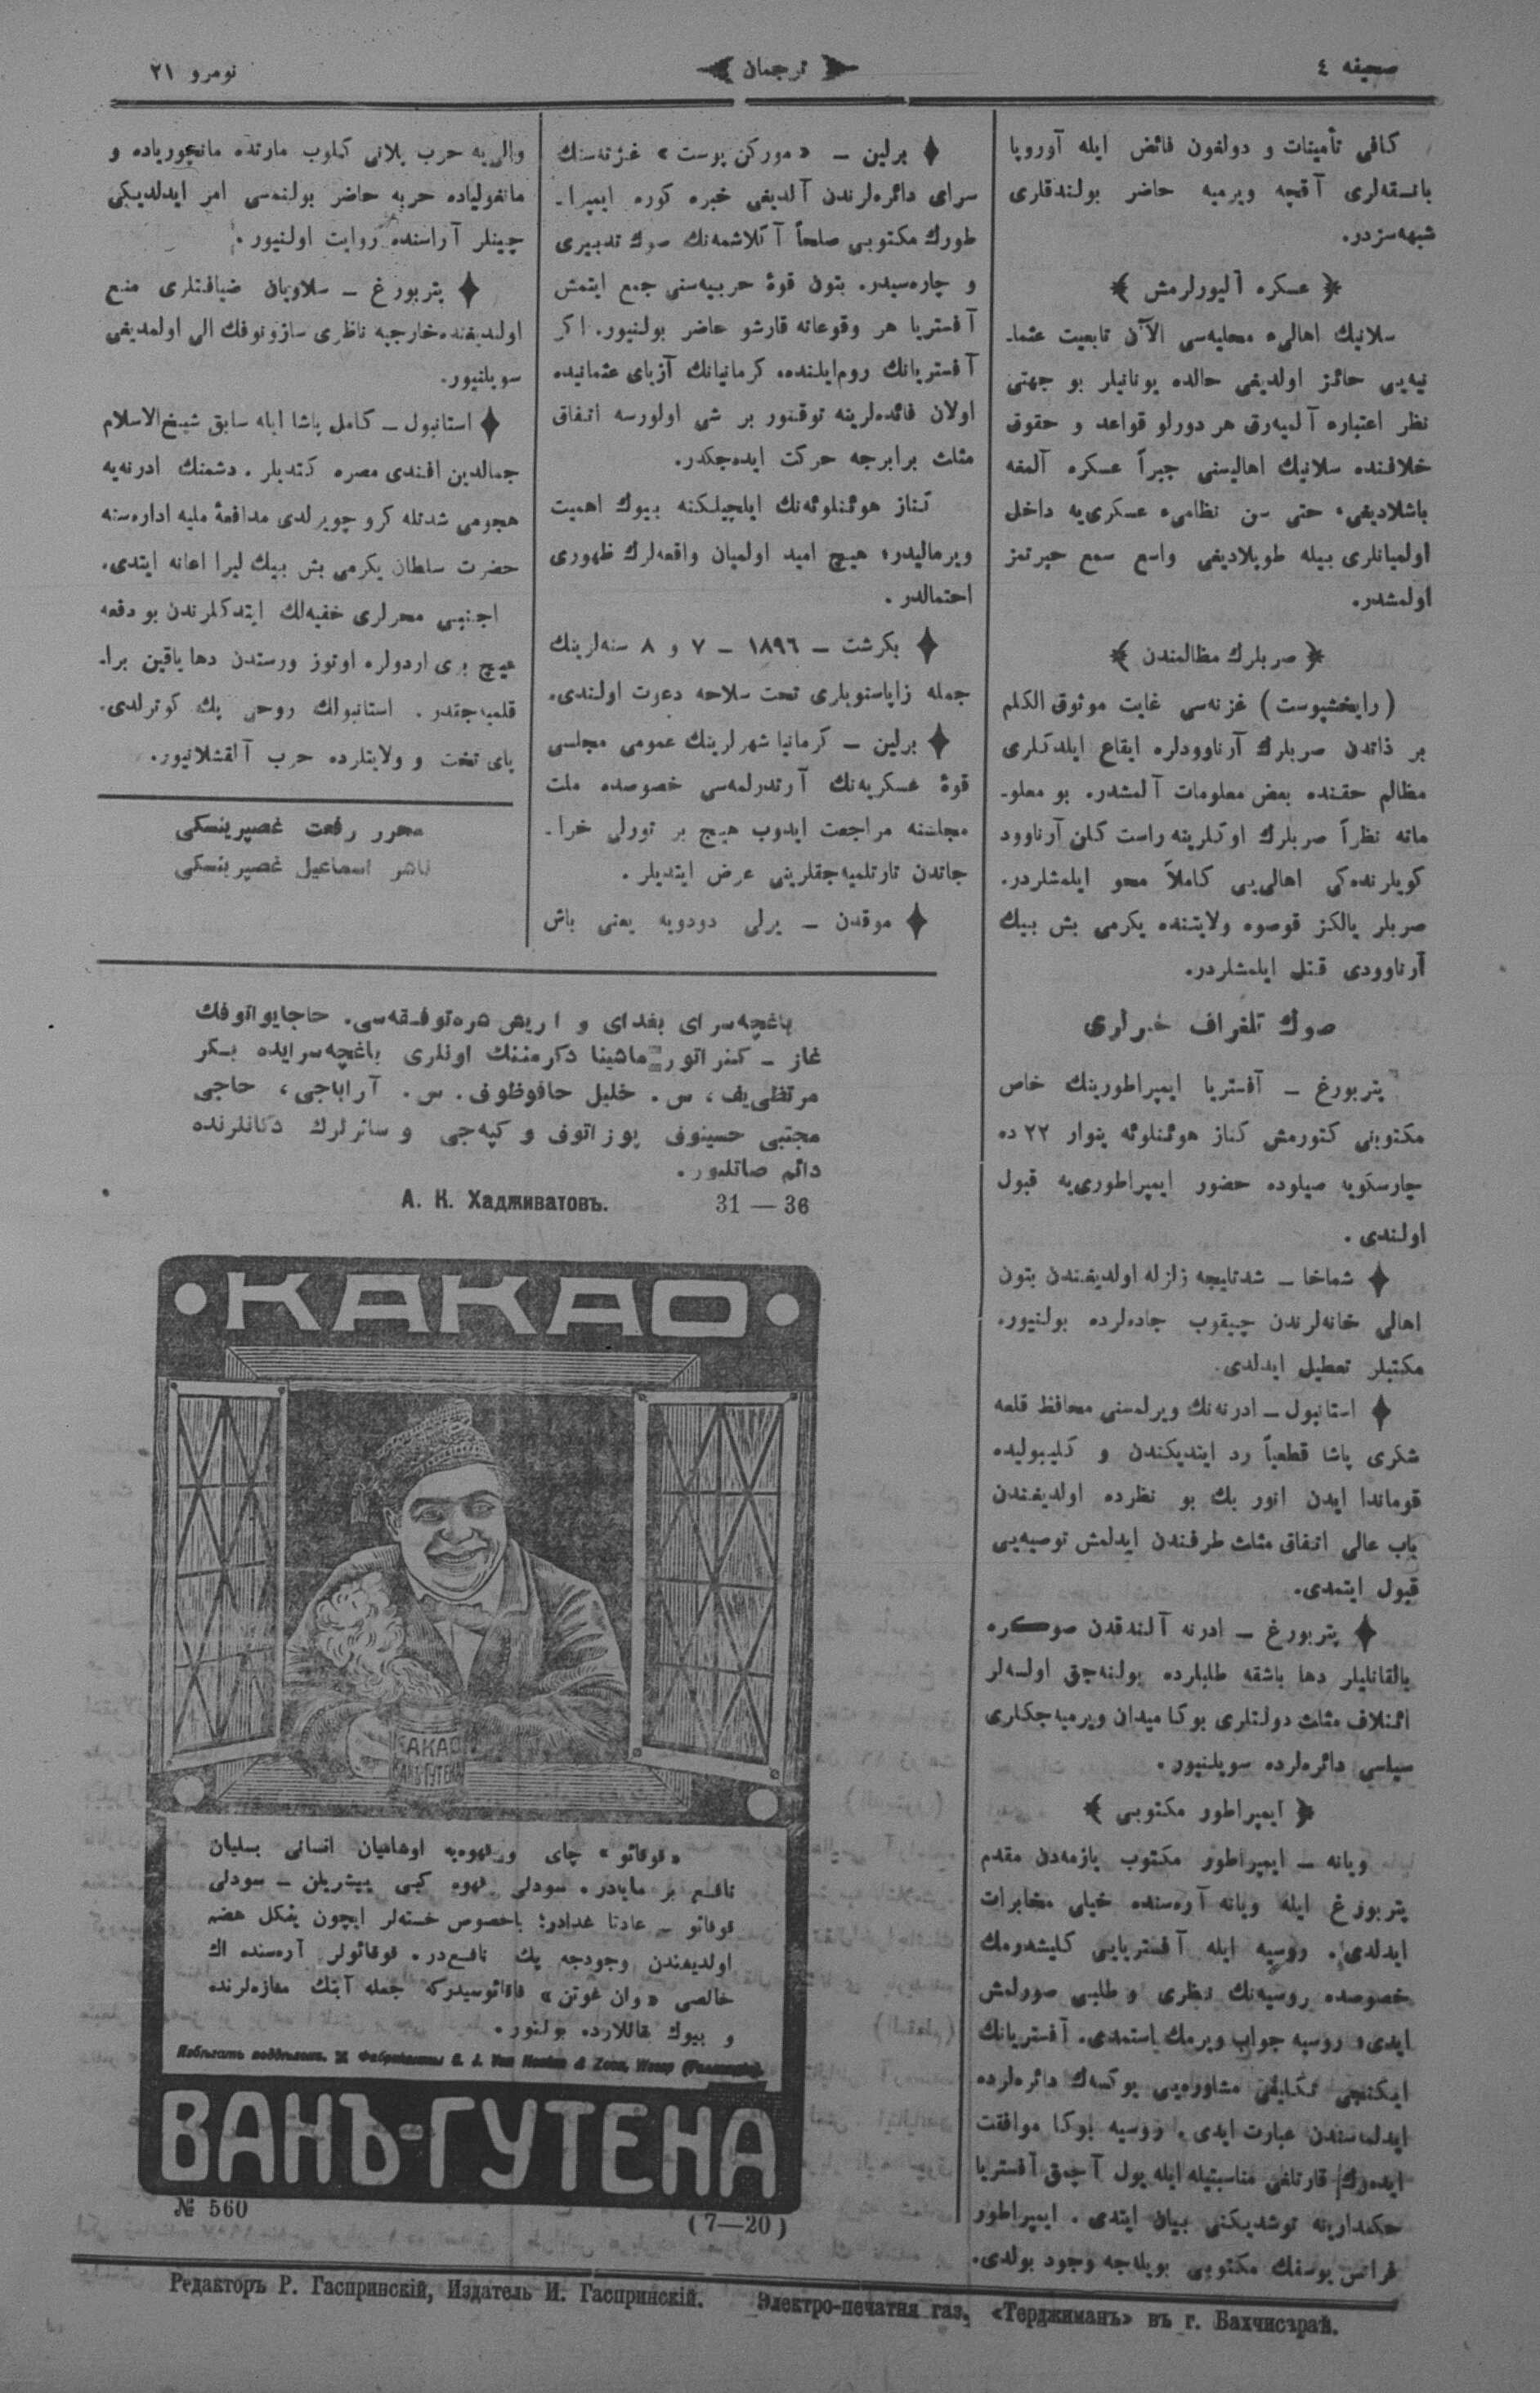 صحيفه ٤
ترجمان
نومرو ٢١
كافى تأمينات و دولغون فائض ايله آوروپا
بانقه‌لرى آقچه ويرميه حاضر بولندقلرى
شبهه‌سزدر.
عسكره آليورلرمش
سلانيك اهالىء محليه‌سى الآن تابعيت عثما-
نيه‌يى حائز اولديغى حالده يونانيلر بو جهتى
نظر اعتباره آلميه‌رق هر دورلو قواعد و حقوق
خلافنده سلانيك اهاليسنى جبراً عسكره آلمغه
باشلاديغى، حتى سن نظامىء عسكرى‌يه داخل
اولميانلرى بيله طوپلاديغى واسع سمع حيرتمز
اولمشدر.
صربلرك مظالمندن
(رايخشپوست) غزته‌سى غايت موثوق الكلم
بر ذاتدن صربلرك آرناوودلره ايقاع ايلدكلرى
مظالم حقنده بعض معلومات آلمشدر. بو معلو-
ماته نظراً صربلرك اوكلرينه راست كلن آرناوود
كويلرنده‌كى اهالى‌يى كاملاً محو ايلمشلردر.
صربلر يالكز قوصوه ولايتنده يكرمى بش بيك
آرناوودى قتل ايلمشلردر.
صوك تلغراف خبرلرى
پتربورغ – آفستريا ايمپراطورينك خاص
مكتوبنى كتورمش كناز هوئنلوئه ينوار ٢٢ ده
چارسكويه صيلوده حضور ايمپراطورى‌يه قبول
اولندى.
شماخا – شدتليجه زلزله اولديغندن بتون
اهالى خانه‌لرندن چيقوب جاده‌لرده بولنيور.
مكتبلر تعطيل ايدلدى.
استانبول – ادرنه‌نك ويرلمسنى محافظ قلعه
شكرى پاشا قطعياً رد ايتديكندن و كليبوليده
قوماندا ايدن انور بك بو نظرده اولديغندن
باب عالى اتفاق مثلث طرفندن ايدلمش توصيه‌يى
قبول ايتمدى.
پتربورغ – ادرنه آلندقدن صوكره
بالقانليلر دها باشقه طلبلرده بولنه‌جق اولسه‌لر
ائتلاف مثلث دولتلرى بوكا ميدان ويرميه‌جكلرى
سياسى دائره‌لرده سويلنيور.
ايمپراطور مكتوبى
ويانه – ايمپراطور مكتوب يازمه‌دن مقدم
پتربورغ ايله ويانه آره‌سنده خيلى مخابرات
ايدلدى. روسيه ايله آفستريايى كليشدرمك
خصوصده روسيه‌نك نظرى و طلبى صورلمش
ايدى، روسيه جواب ويرمك استمدى. آفستريانك
ايكنجى تكليفى مشاوره‌يى يوكسك دائره‌لرده
ايدلمه‌سندن عبارت ايدى. روسيه بوكا موافقت
ايده‌رك قارتلغى مناسبتيله ايله يول آچمق آفستريا
حكمدارينه توشديكنى بيان ايتدى. ايمپراطور
فرانس يوسفك مكتوبى بويله‌جه وجود بولدى.
برلين – «موركن پوست» غزته‌سنك
سراى دائره‌لرندن آلديغى خبره كوره ايمپرا-
طورك مكتوبى صلحاً آكلاشمه‌نك صوك تدبيرى
و چاره‌سيدر. بتون قوهٔ حربيه‌سنى جمع ايتمش
آفستريا هر وقوعاته قارشو حاضر بولنيور. اكر
آفستريانك روم‌ايلنده، كرمانيانك آزياى عثمانيده
اولان فائده‌لرينه توقنور بر شى اولورسه اتفاق
مثلث برابرجه حركت ايده‌جكدر.
كناز هوئنلوئه‌نك ايلچيلكنه بيوك اهميت
ويرماليدر؛ هيچ اميد اولميان واقعه‌لرك ظهورى
احتمالدر.
بكرشت – ١٨٩٦ – ٧ و ٨ سنه‌لرينك
جمله زاپاسنويلرى تحت سلاحه دعوت اولندى.
برلين – كرمانيا شهرلرينك عمومى مجلسى
قوهٔ عسكريه‌نك آرتدرلمه‌سى خصوصده ملت
مجلسنه مراجعت ايدوب هيچ بر تورلى خرا-
جاتدن تارتلميه‌جقلرينى عرض ايتديلر.
موقدن – يرلى دودويه يعنى باش
والى‌يه حرب پلانى كيلوب مارتده مانچورياده و
مانغولياده حربه حاضر بولنمسى امر ايدلديكى
چينلر آراسنده روايت اولنيور.
پتربورغ – سلاويان ضيافتلرى منع
اولديغنده خارجيه ناظرى سازونوفك الى اولمديغى
سويلنيور.
استانبول – كامل پاشا ايله سابق شيخ‌الاسلام
جمالدين افندى مصره كتديلر. دشمنك ادرنه‌يه
هجومى شدتله كرو چويرلدى مدافعهٔ مليه اداره‌سنه
حضرت سلطان يكرمى بش بيك ليرا اعانه ايتدى.
اجنبى محررلرى خفيه‌لك ايتدكلرندن بو دفعه
هيچ برى اردولره اوتوز ورستدن دها ياقين برا-
قلميه‌جقدر. استانبولك روحى پك كوترلدى.
پاى تخت و ولايتلرده حرب آلقشلانيور.
محرر رفعت غصپرينسكى
ناشر اسماعيل غصپرينسكى
باغچه‌سراى بغداى و اريش فره‌توفقه‌سى. حاجايواتوفك
غاز – كنراتور ماشينا دكرمننك اونلرى باغچه‌سرايده بكر
مرتظى‌يف، س. خليل حافوظوف. س. آراباجى، حاجى
مجتبى حسينوف پوزاتوف و كپه‌جى و سائرلرك دكانلرنده
دائم صاتليور.
А. К. Хадживатовъ. 31 — 36
КАКАО
КАКАО
ВАНЪ-ГУТЕНА
«قوقائو» چاى و قهوه‌يه اوشاميان انسانى بسليان
نافع بر مايادر. سودلى قهوه كبى پيشريلن – سودلى
قوقائو – عادتا غدادر؛ باخصوص خسته‌لر ايچون يڭكل هضم
اولديغندن وجودجه پك نافع‌در. قوقائولر آره‌سنده اڭ
خالصى «وان غوتن» قاقائوسيدركه جمله آپتك مغازه‌لرنده
و بيوك بقاللارده بولنور.
Избѣгать поддѣлокъ. Фабриканты C. J. Van Houten & Zoon, Weesp (Голландія).
ВАНЪ-ГУТЕНА
№ 560
(7—20)
Редакторъ Р. Гаспринскій, Издатель И. Гаспринскій.
Электро-печатня газ. «Терджиманъ» въ г. Бахчисараѣ.